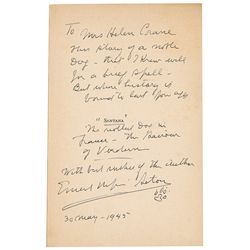 To Mrs Helen Crane
This story of a noble
Dog - that I knew well
for a brief spell -
But whose history is
bound to last for aye
"SANTANA"
The noblest Dog in
France - The Saviour
of Verdun
With best wishes of the author
Ernest
30 May - 1945